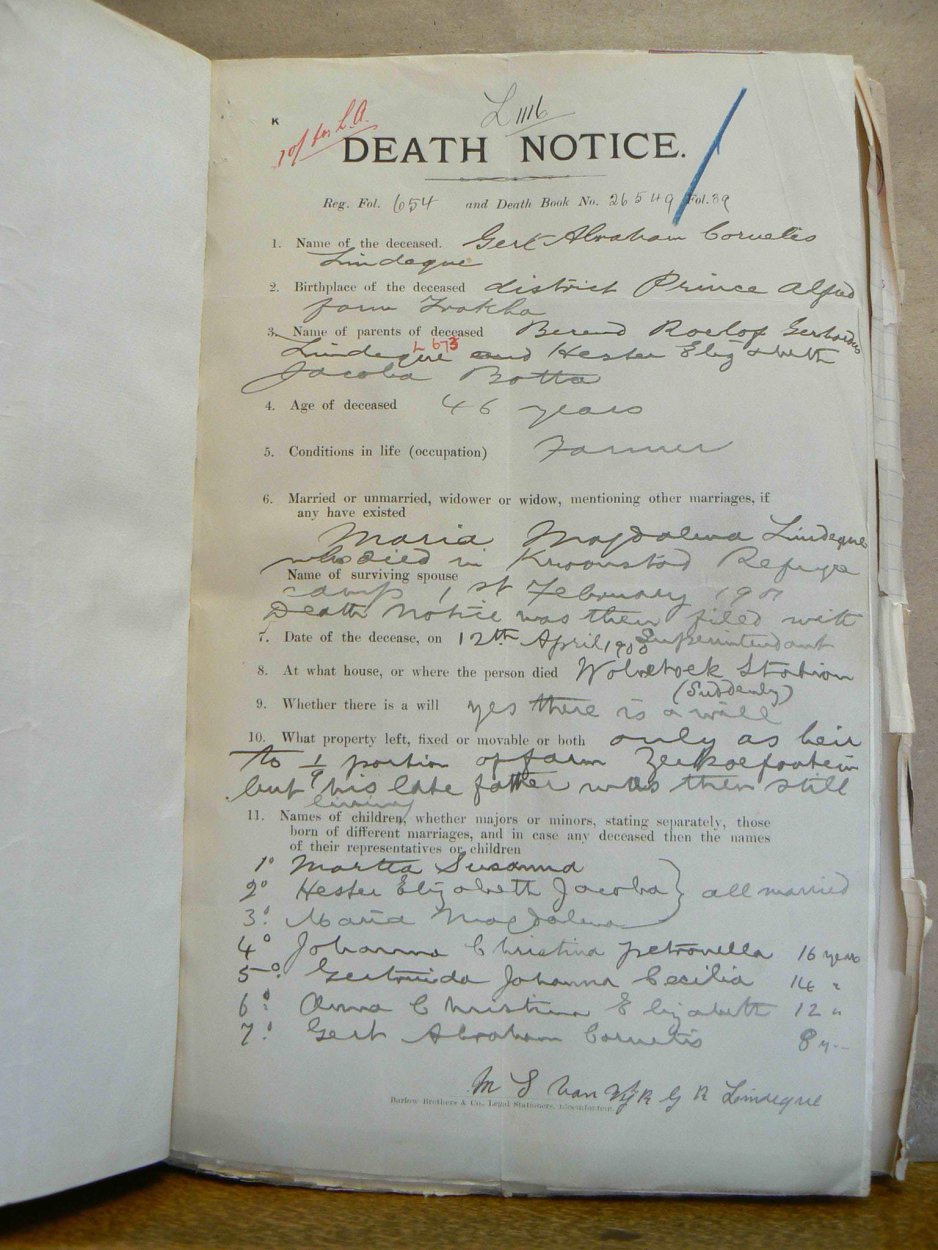 L 1116
K
for L.A.
DEATH NOTICE.
Reg. Fol. 654 and Death Book No. 26549 Fol. 39
1. Name of the deceased. Gert Abraham Cornelis
Lindeque
2. Birthplace of the deceased district Prince Alfred
farm
3. Name of parents of deceased Berend Roelof Gerhardus
L 673
Lindeque and Hester Elizabeth
Jacoba Botta
4. Age of deceased 46 years
5. Conditions in life (occupation) Farmer
6. Married or unmarried, widower or widow, mentioning other marriages, if
any have existed
Maria Magdalena Lindeque
who died in Kroonstad Refuge
Name of surviving spouse
camp 1st February 190
Death Notice was then filed with
7. Date of the decease, on 12th April 1900 Superintendant
8. At what house, or where the person died Wolvehoek Station
(Suddenly)
9. Whether there is a will yes there is a will
10. What property left, fixed or movable or both only as heir
to 1/9 portion of farm Zeekoefontein
but his late father was then still
living
11. Names of children, whether majors or minors, stating separately, those
born of different marriages, and in case any deceased then the names
of their representatives or children
1° Martha Susanna
2° Hester Elizabeth Jacoba } all married
3° Maria Magdalena
4° Johanna Christina Petronella 16 years
5° Gertruida Johanna Cecilia 14 "
6° Anna Christina Elizabeth 12 "
7° Gert Abraham Cornelis 8 y--
M S Van Wyk G R Lindeque
Barlow Brothers & Co. Legal Stationers, Bloemfontein.